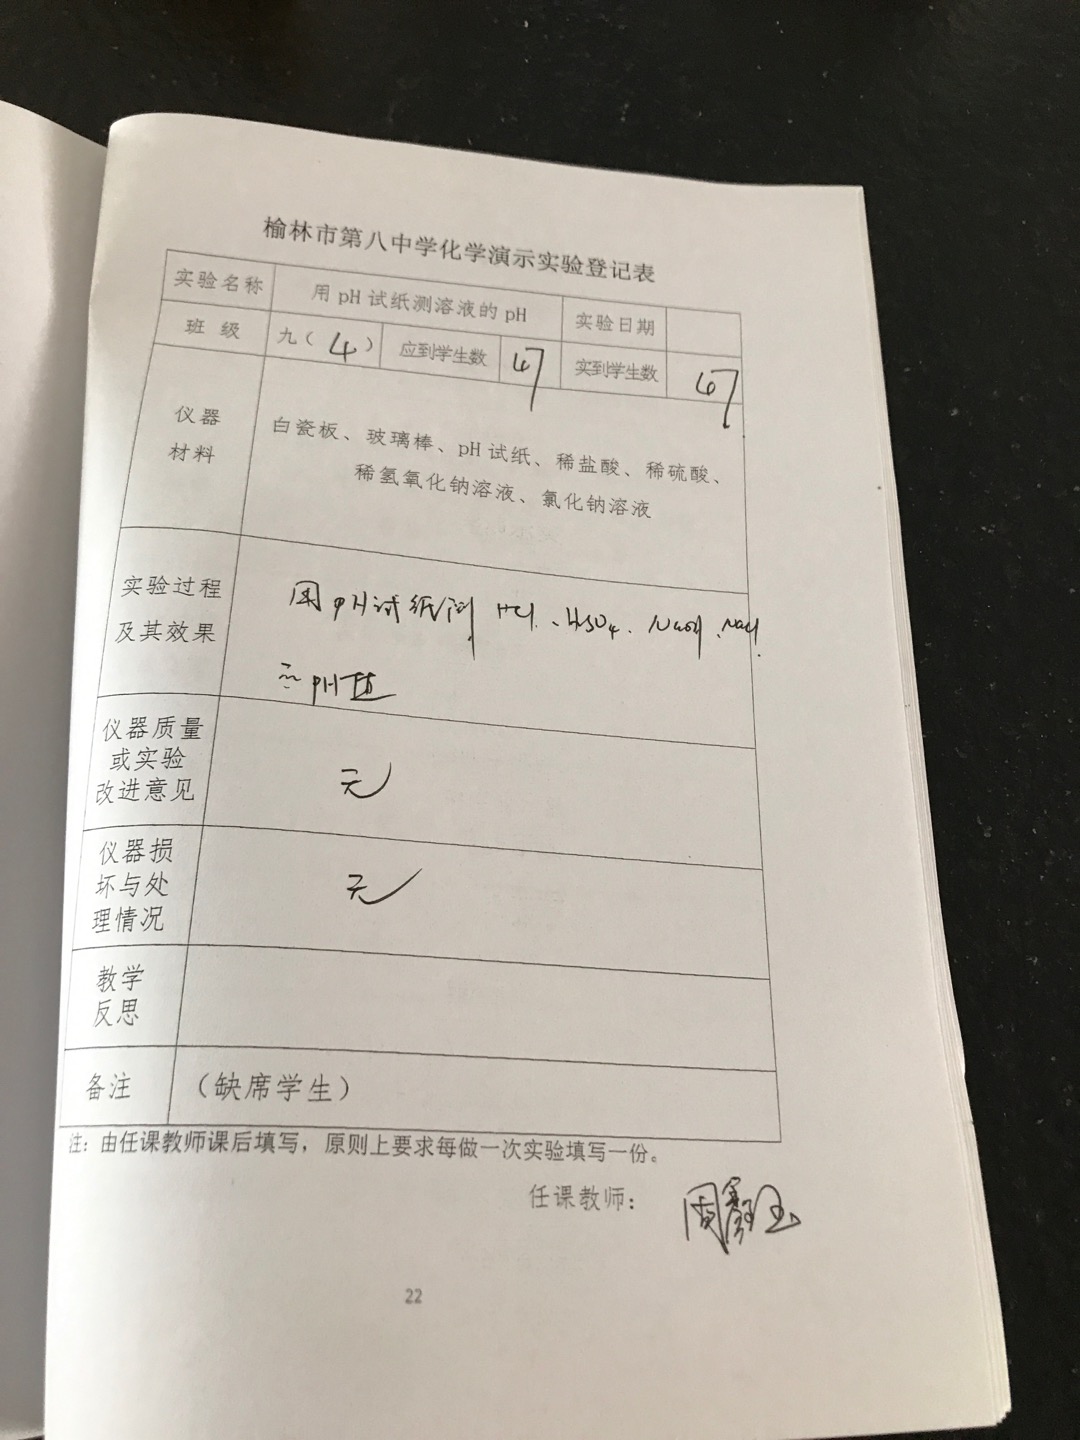 榆林市第八中学化学演示实验登记表
实验名称 用 pH 试纸测溶液的 pH 实验日期
班 级 九( 4 ) 应到学生数 67 实到学生数 67
仪器
材料
白瓷板、玻璃棒、pH 试纸、稀盐酸、稀硫酸、
稀氢氧化钠溶液、氯化钠溶液
实验过程
及其效果
用pH试纸测 HCl、H₂SO₄、NaOH、NaCl
pH值
仪器质量
或实验
改进意见
无
仪器损
坏与处
理情况
无
教学
反思
备注 (缺席学生)
注：由任课教师课后填写，原则上要求每做一次实验填写一份。
任课教师：周
22